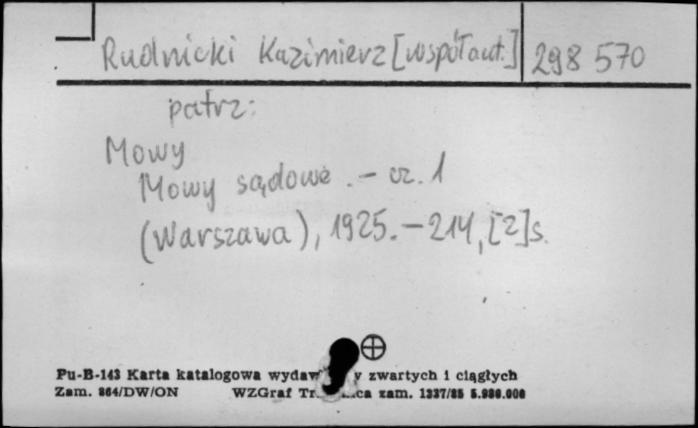 Rudnicki Kazimierz [współaut.] 298 570
patrz:
Mowy
Mowy sądowe . - cz. 1
(Warszawa), 1925. - 214, [2] s.
Pu-B-143 Karta katalogowa zwartych i ciągłych
Zam. 864/DW/ON WZGraf zam. 1337/85 5.980.000